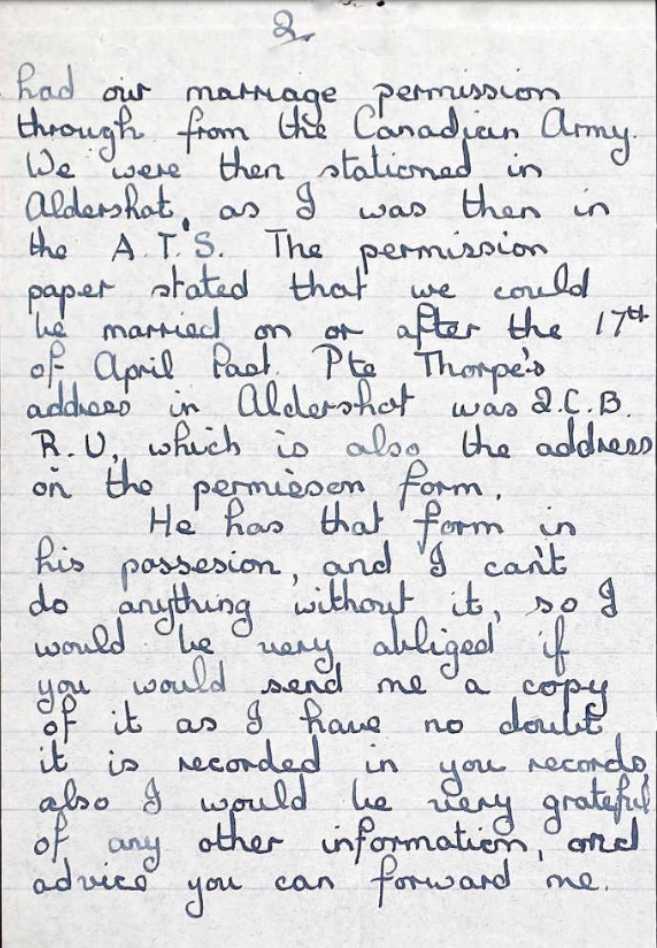 2.
had our marriage permission
through from the Canadian Army.
We were then stationed in
Aldershot, as I was then in
the A.T.'S. The permission
paper stated that we could
be married on or after the 17th
of April Past. Pte Thorpe's
address in Aldershot was 2.C.B.
R.U, which is also the address
on the permission form.
He has that form in
his possesion, and I can't
do anything without it, so I
would be very obliged if
you would send me a copy
of it as I have no doubt
it is recorded in you records,
also I would be very grateful
of any other information, and
advice you can forward me.